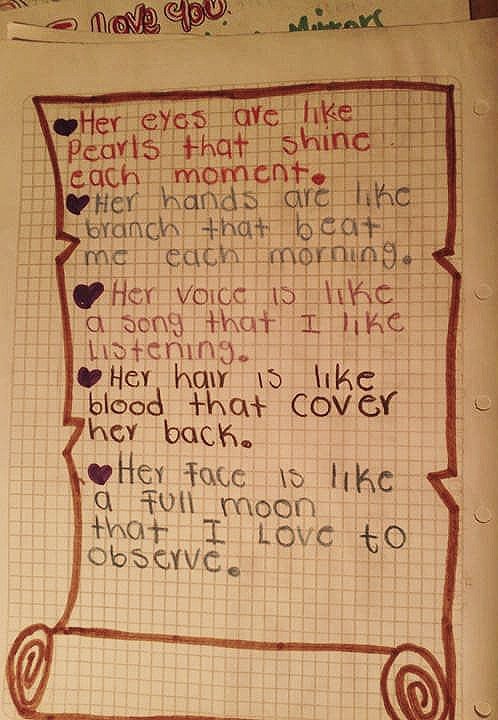 I Love You.
Mirrors
Her eyes are like
Pearls that shine
each moment.
Her hands are like
branch that beat
me each morning.
Her voice is like
a song that I like
Listening.
Her hair is like
blood that cover
her back.
Her face is like
a full moon
that I Love to
observe.